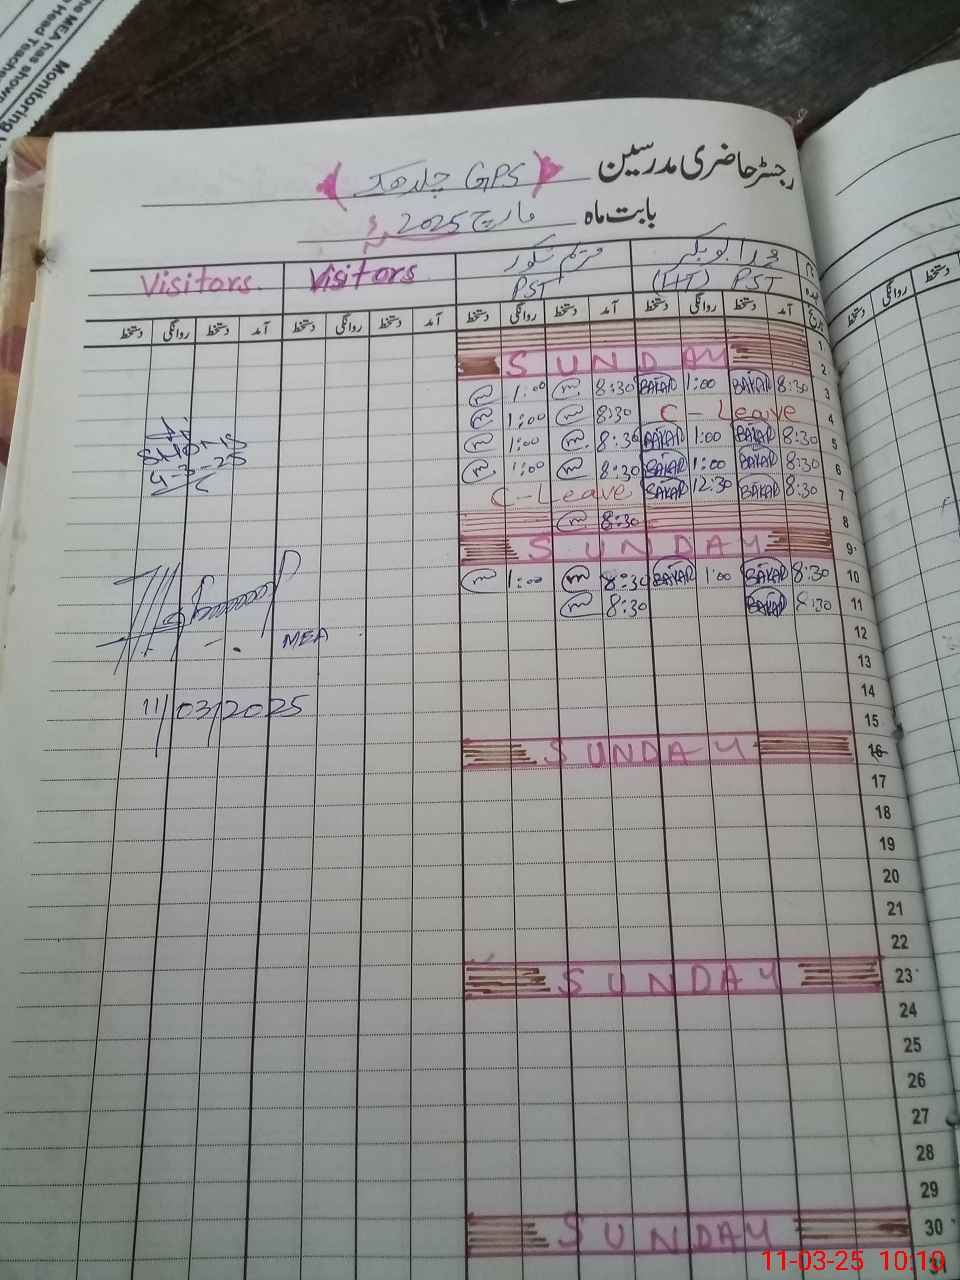 Monitoring
Head Teache
the MEA has shown
رجسٹر حاضری مدرسین GPS
بابت ماہ مارچ 2025
Visitors Visitors
(HT) PST PST
آمد دستخط روانگی دستخط آمد دستخط روانگی دستخط آمد دستخط روانگی دستخط آمد دستخط روانگی دستخط
1
SUNDAY 2
1:00 8:30 BAKAR 1:00 BAKAR 8:30 3
1:00 8:30 C-Leave 4
1:00 8:30 BAKAR 1:00 BAKAR 8:30 5
1:00 8:30 BAKAR 1:00 BAKAR 8:30 6
C-Leave BAKAR 12:30 BAKAR 8:30 7
8:30 8
SUNDAY 9
1:00 8:30 BAKAR 1:00 BAKAR 8:30 10
8:30 BAKAR 8:30 11
4-3-25
MEA
11/03/2025
12
13
14
15
SUNDAY 16
17
18
19
20
21
22
SUNDAY 23
24
25
26
27
28
29
SUNDAY 30
31
11-03-25 10:10